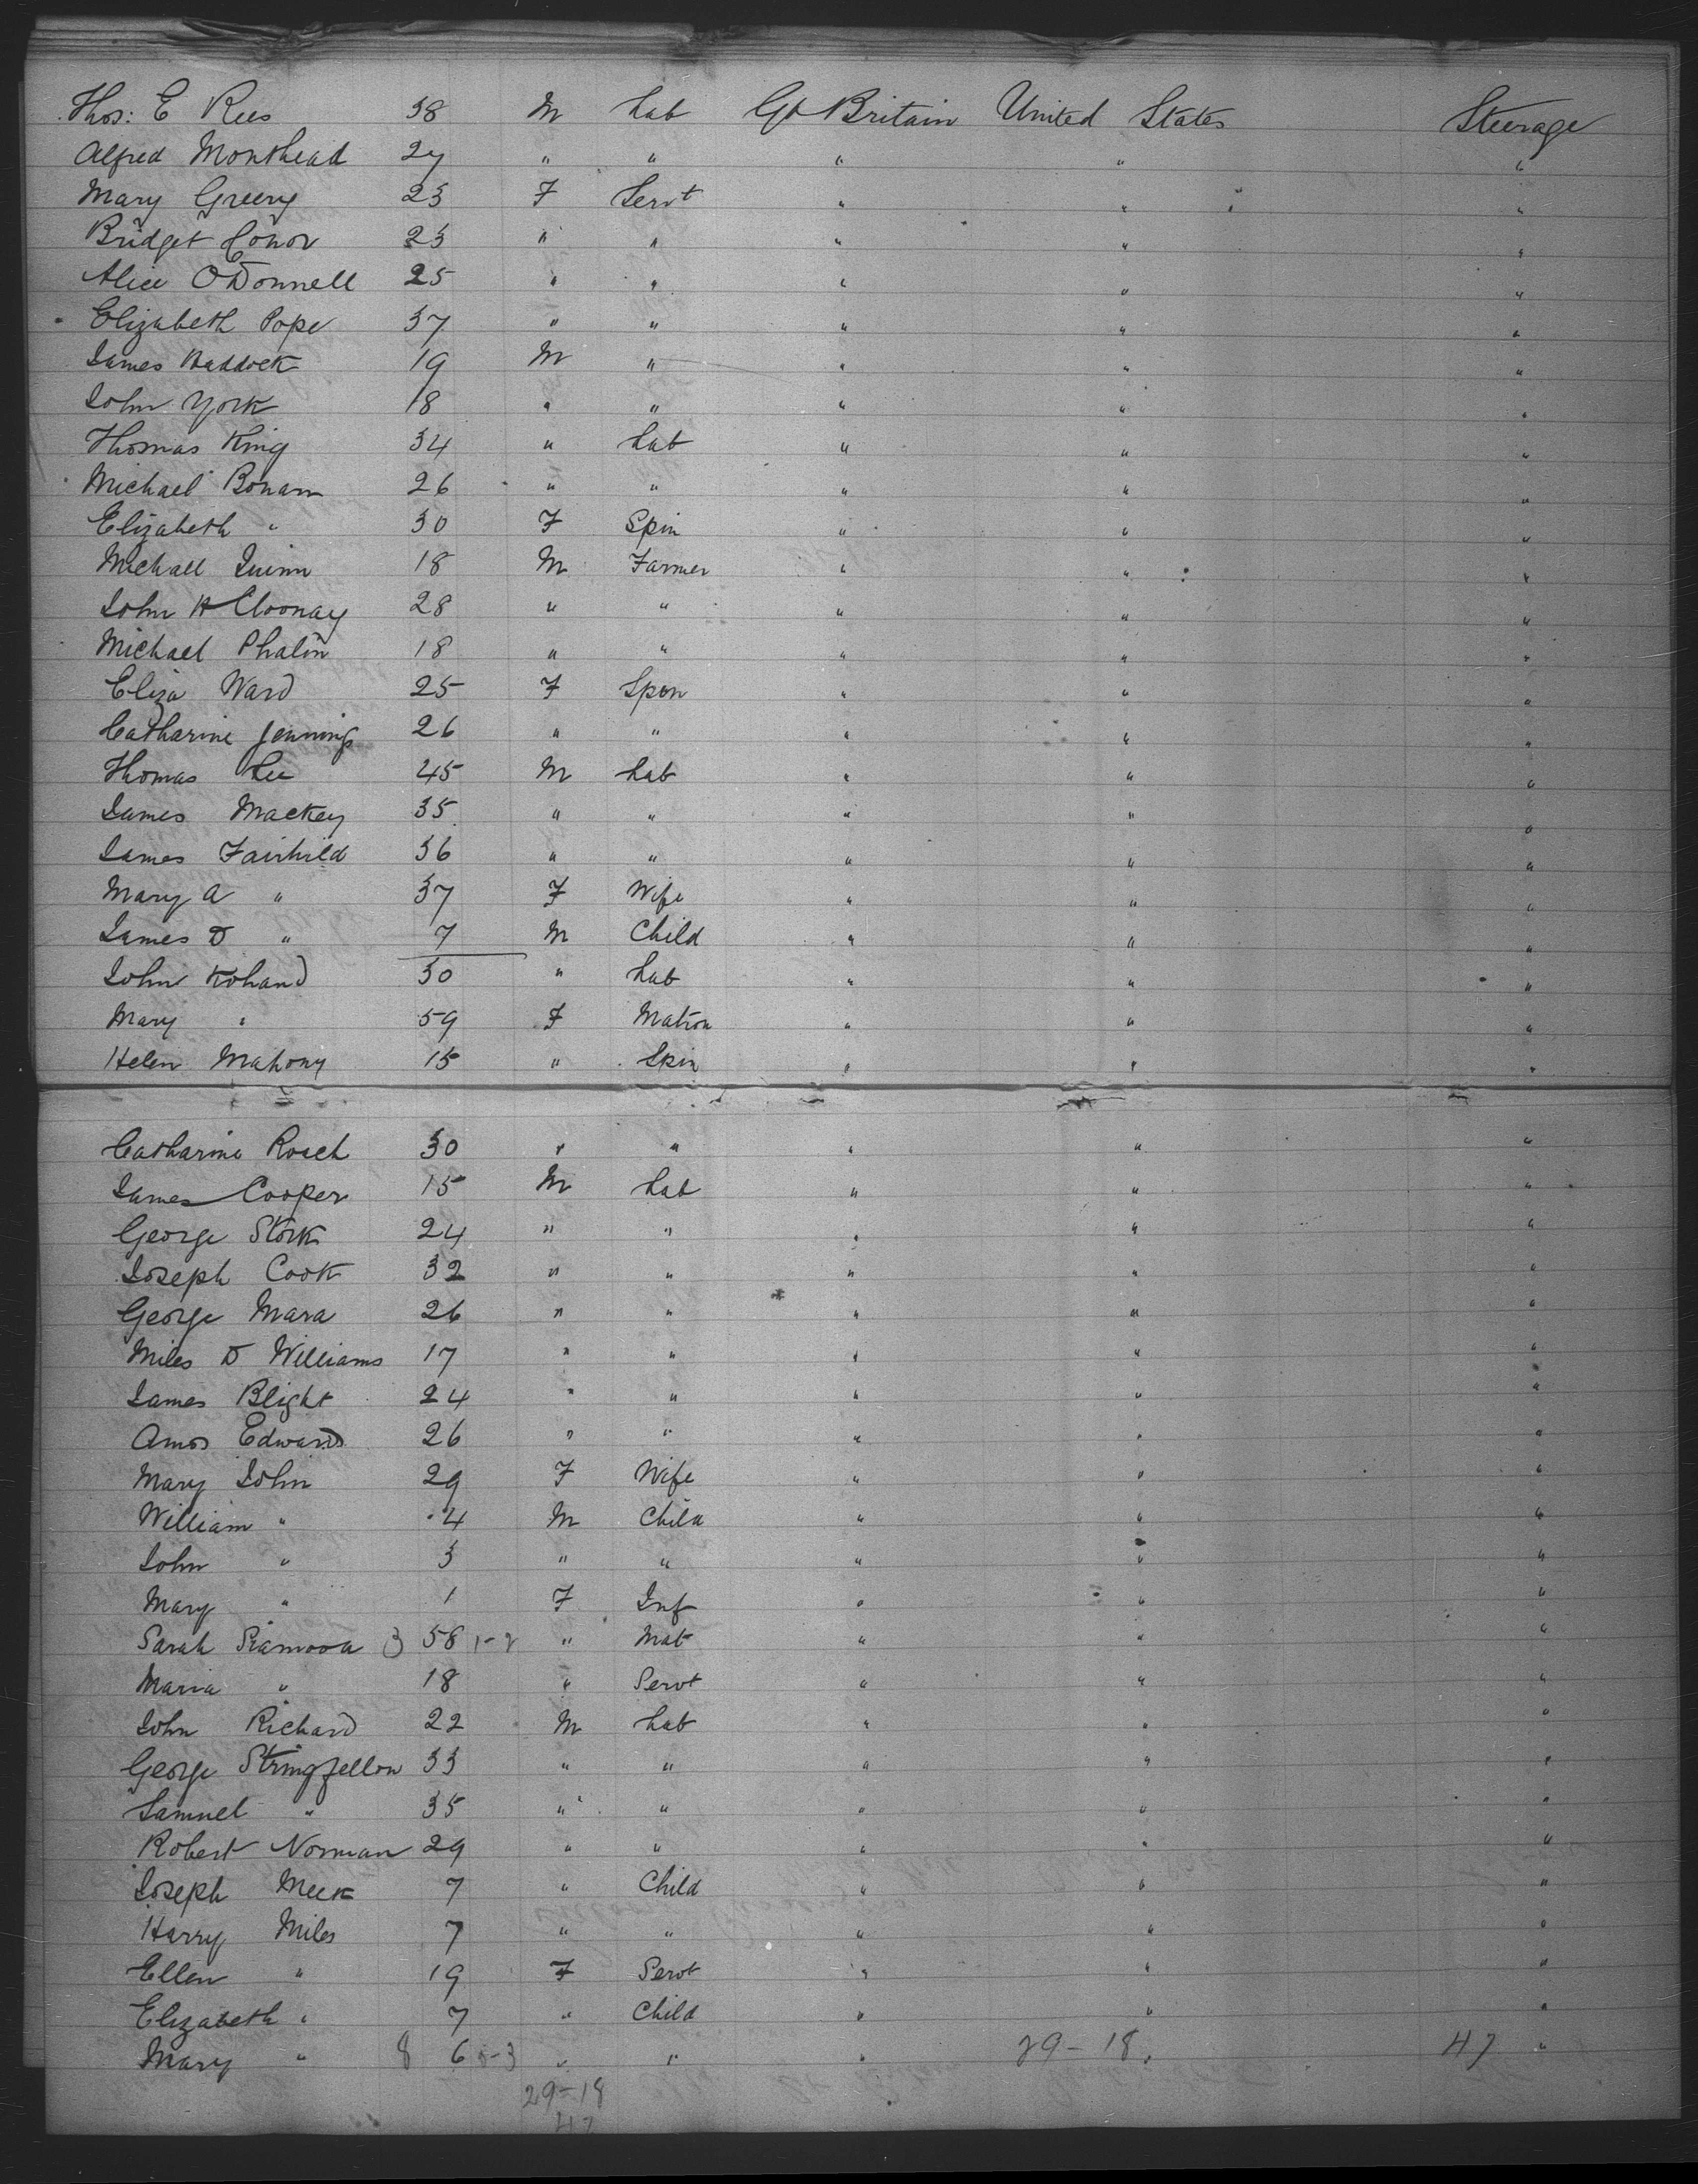 Thos: E Rees 38 M Lab Gt Britain United States Steerage
Alfred Monthead 27 " " " " "
Mary Greeny 23 F Servt " " "
Bridget Conor 23 " " " " "
Alice O'Donnell 25 " " " " "
Elizabeth Pope 37 " " " " "
James Haddock 19 M " " " "
John York 18 " " " " "
Thomas King 34 " Lab " " "
Michael Bonam 26 " " " " "
Elizabeth " 30 F Spin " " "
Michael Quinn 18 M Farmer " " "
John H Cloonay 28 " " " " "
Michael Phalin 18 " " " " "
Eliza Ward 25 F Spin " " "
Catharine Jennings 26 " " " " "
Thomas Lee 45 M Lab " " "
James Mackey 35 " " " " "
James Fairhild 36 " " " " "
Mary A " 37 F Wife " " "
James D " 7 M Child " " "
John Kohand 30 " Lab " " "
Mary " 59 F Matron " " "
Helen Mahony 15 " Spin " " "
Catharine Roach 30 " " " " "
James Cooper 15 M Lab " " "
George Stork 24 " " " " "
Joseph Cook 32 " " " " "
George Mara 26 " " " " "
Miles D Williams 17 " " " " "
James Blight 24 " " " " "
Amos Edwards 26 " " " " "
Mary John 29 F Wife " " "
William " 4 M Child " " "
John " 3 " " " " "
Mary " 1 F Inf " " "
Sarah 3 58 1-2 " Mat " " "
Maria " 18 " Servt " " "
John Richard 22 M Lab " " "
George Stringfellow 33 " " " " "
Samuel " 35 " " " " "
Robert Norman 29 " " " " "
Joseph Meek 7 " Child " " "
Harry Miles 7 " " " " "
Ellen " 19 F Servt " " "
Elizabeth " 7 " Child " " "
Mary " 8 6 5-3 " " " 29-18 " 47 "
29-18
47